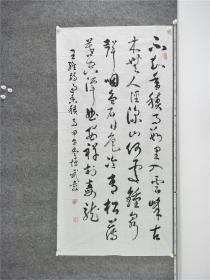 不知香積寺數里入雲峰古
木無人徑深山何處鐘泉
聲咽危石日色冷青松薄
暮空潭曲安禪制毒龍
王維詩過香積寺